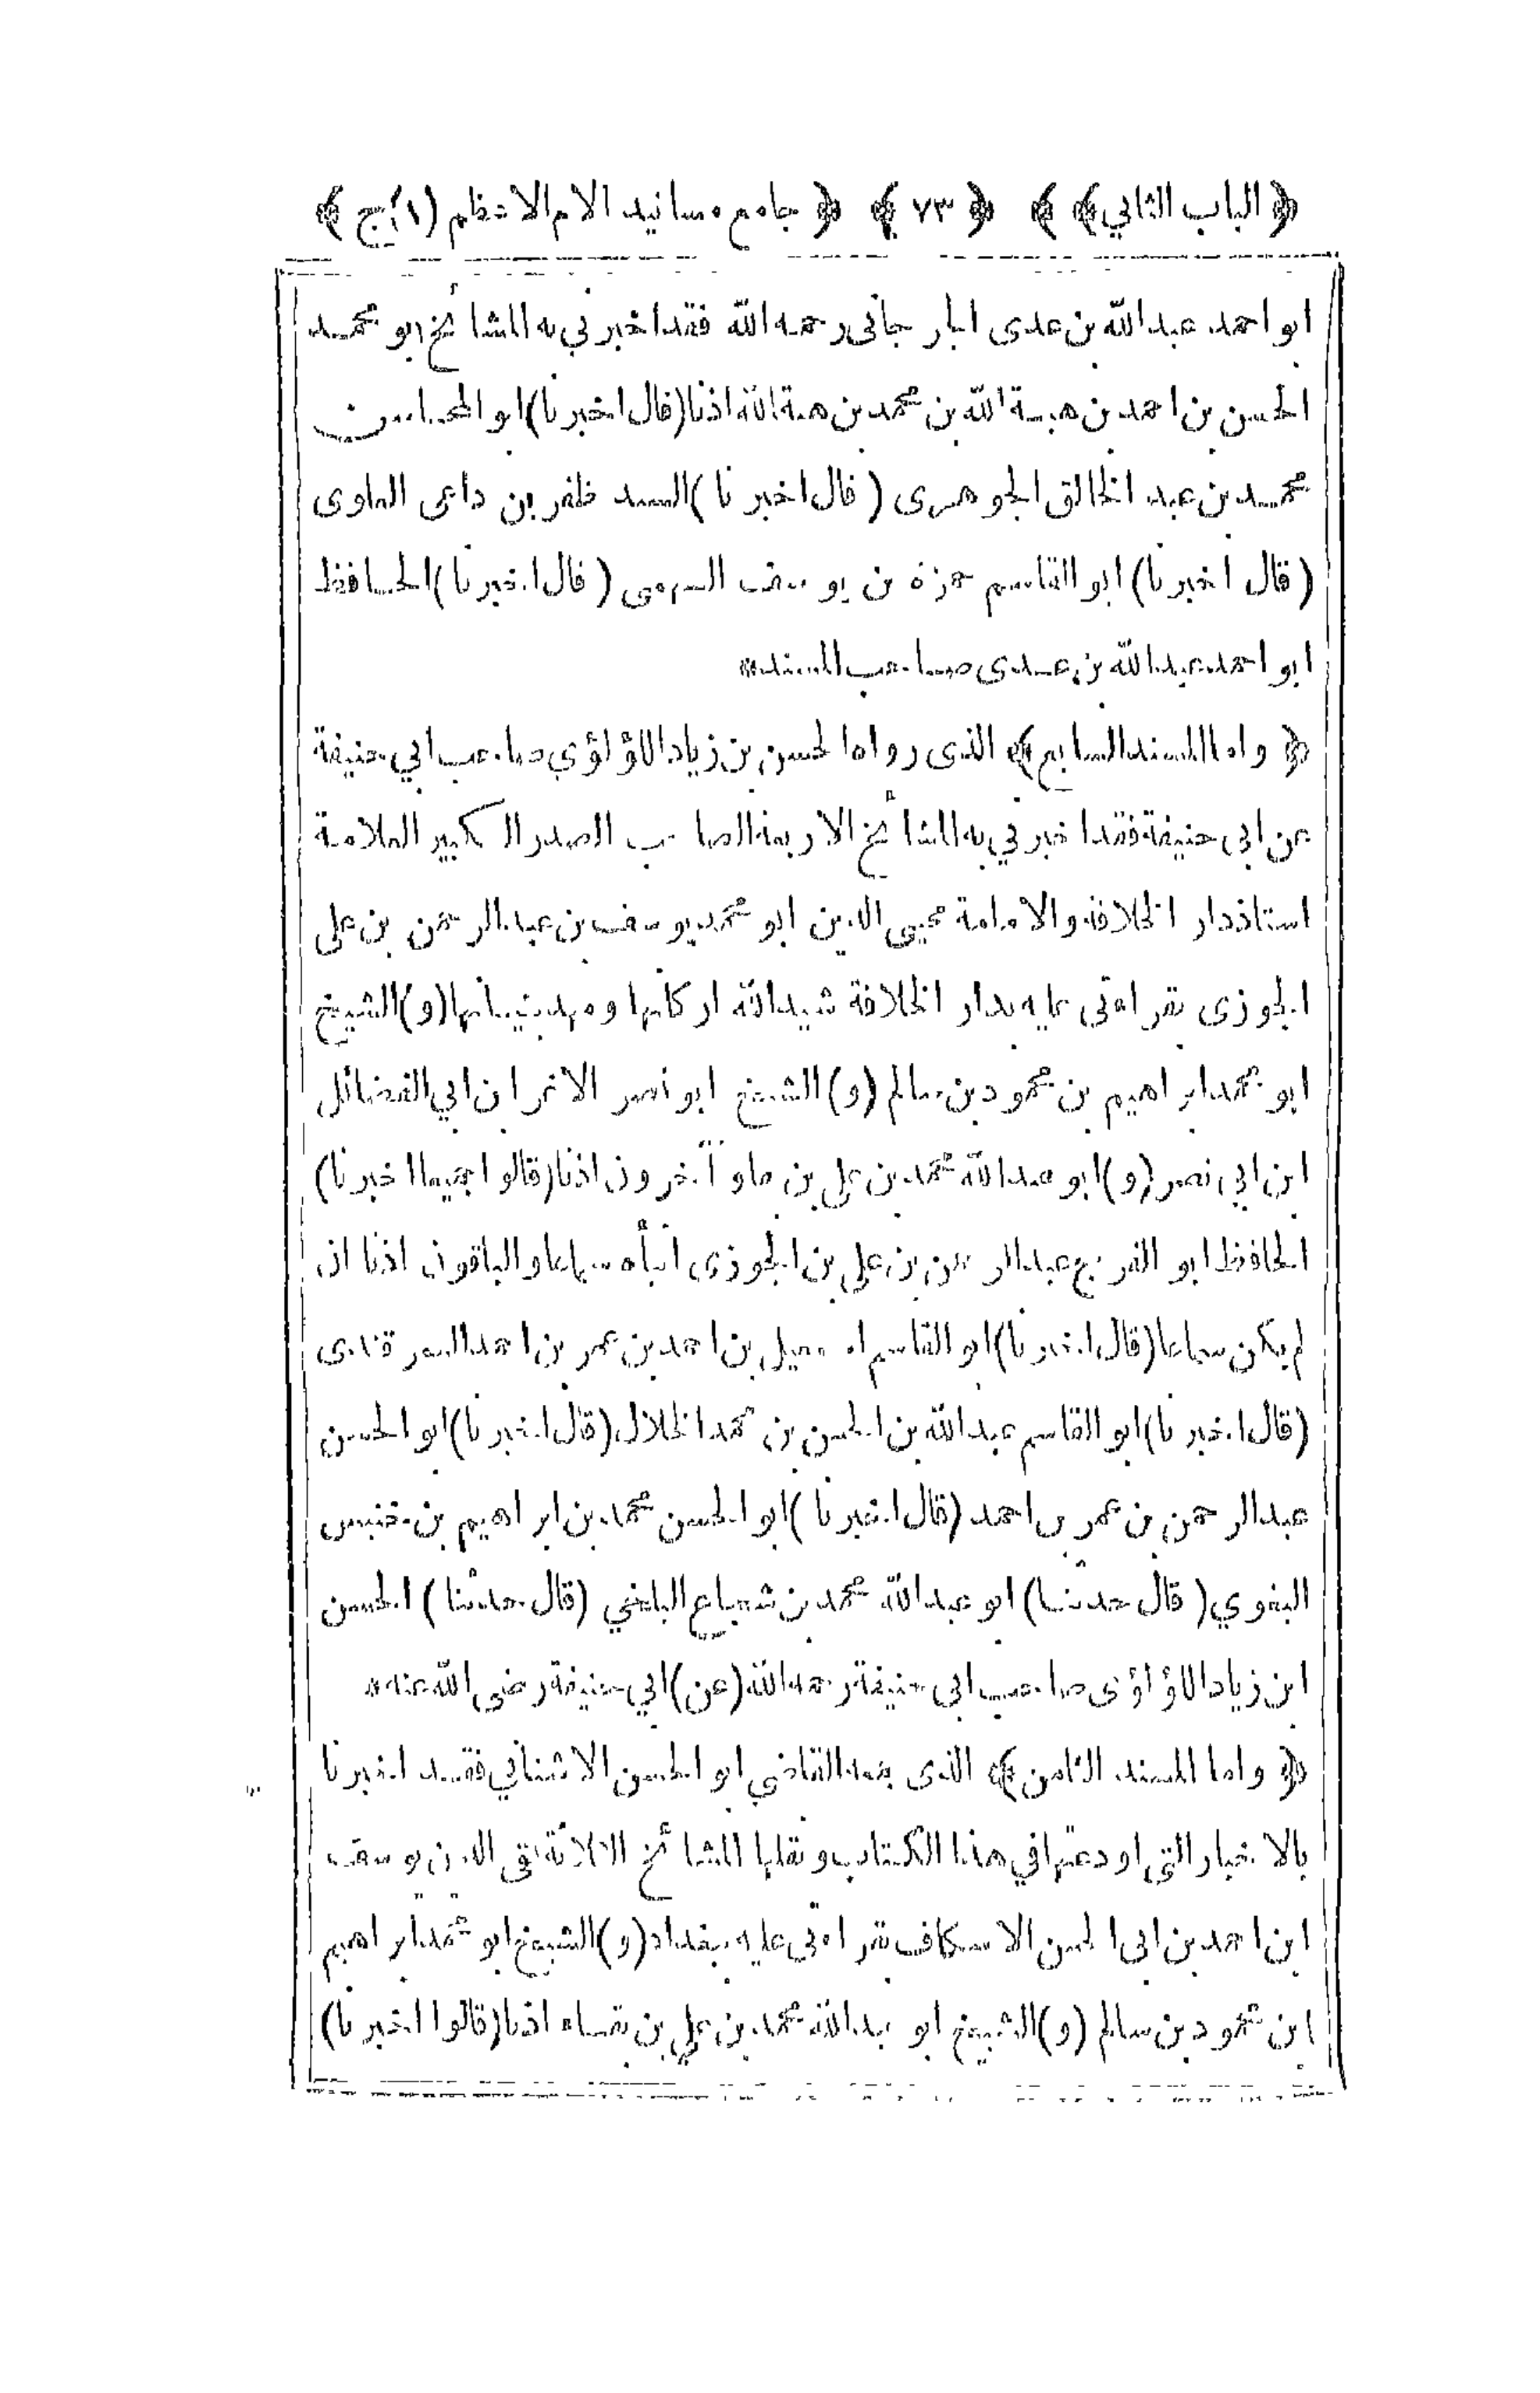 ﴿ الباب الثاني ﴾ ﴿ ٧٣ ﴾ ﴿ جامع مسانيد الامام الاعظم (١) ج ﴾
ابو احمد عبد الله بن عدى الجرجانى رحمه الله فقد اخبرني به المشائخ ابو محمد
الحسن بن احمد بن هبة الله بن محمد بن هبة الله اذنا (قال اخبرنا) ابو المحاسن
محمد بن عبد الخالق الجوهرى (قال اخبرنا) السيد ظفر بن داعى العلوى
(قال اخبرنا) ابو القاسم حمزة بن يوسف السهمى (قال اخبرنا) الحافظ
ابو احمد عبد الله بن عدى صاحب المسند*
﴿ واما المسند السابع ﴾ الذى رواه الحسن بن زياد اللؤلؤي صاحب ابي حنيفة
عن ابى حنيفة فقد اخبرني به المشائخ الاربعة الصاحب الصدر الكبير العلامة
استاذدار الخلافة والامامة محيي الدين ابو محمد يوسف بن عبد الرحمن بن على
الجوزى بقراءتى عليه بدار الخلافة شيد الله اركانها ومهد بنيانها (و) الشيخ
ابو محمد ابراهيم بن محمود بن سالم (و) الشيخ ابو نصر الاغر بن ابي الفضائل
ابن ابي نصر (و) ابو عبد الله محمد بن علي بن وآخرون اذنا (قالوا جميعا اخبرنا)
الحافظ ابو الفرج عبد الرحمن بن علي بن الجوزى انبأه سماعا والباقون اذنا ان
لم يكن سماعا (قال اخبرنا) ابو القاسم اسمعيل بن احمد بن عمر بن احمد السمرقندى
(قال اخبرنا) ابو القاسم عبد الله بن الحسن بن محمد الخلال (قال اخبرنا) ابو الحسن
عبد الرحمن بن عمر بن احمد (قال اخبرنا) ابو الحسن محمد بن ابراهيم بن حنيس
البغوي (قال حدثنا) ابو عبد الله محمد بن شجاع البلخي (قال حدثنا) الحسن
ابن زياد اللؤلؤى صاحب ابى حنيفة رحمه الله (عن) ابي حنيفة رضى الله عنه*
﴿ واما المسند الثامن ﴾ الذى جمعه القاضي ابو الحسن الاشناني فقد اخبرنا
بالاخبار التى اودعتها في هذا الكتاب ونقلها المشائخ الثلاثة تقى الدين يوسف
ابن احمد بن ابى الحسن الاسكاف بقراءتى عليه ببغداد (و) الشيخ ابو محمد ابراهيم
ابن محمود بن سالم (و) الشيخ ابو عبد الله محمد بن علي بن بقاء اذنا (قالوا اخبرنا)